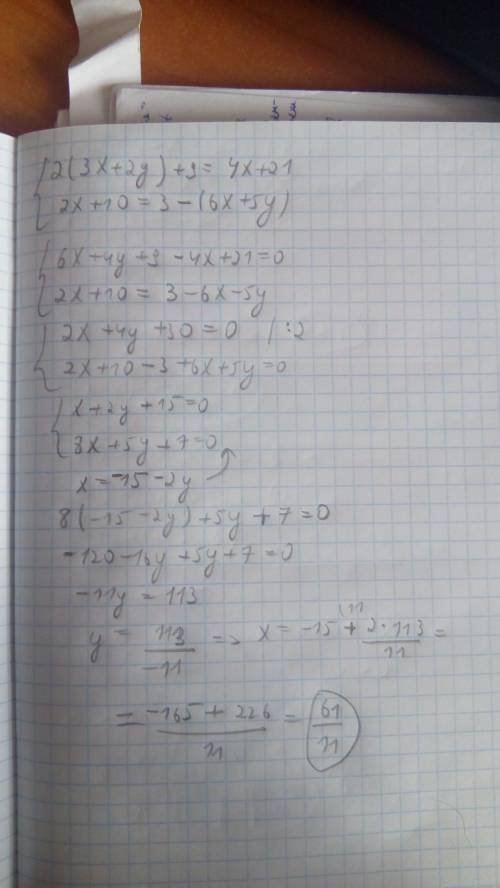 2(3x+2y)+9=4x+21
2x+10=3-(6x+5y)
6x+4y+9-4x+21=0
2x+10=3-6x-5y
2x+4y+30=0 /:2
2x+10-3+6x+5y=0
x+2y+15=0
8x+5y+7=0
x=-15-2y
8(-15-2y)+5y+7=0
-120-16y+5y+7=0
-11y=113
y=113/-11 => x=-15+2·113/11=
=-165+226/11=61/11